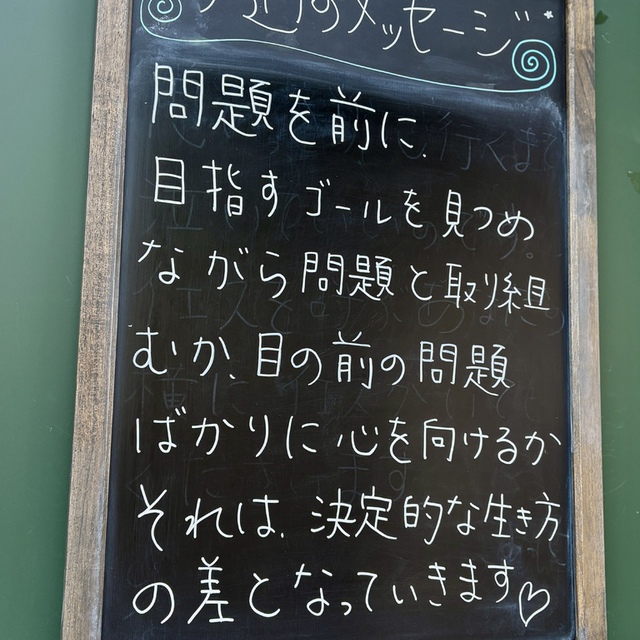 今週のメッセージ
問題を前に、
目指すゴールを見つめ
ながら問題と取り組
むか、目の前の問題
ばかりに心を向けるか
それは、決定的な生き方
の差となっていきます♡